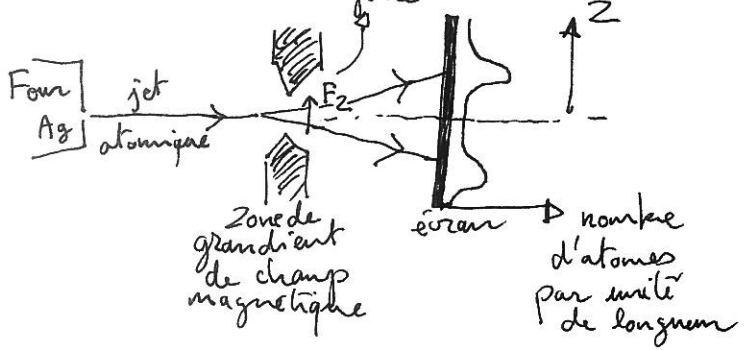 Z
Four
Ag
jet
atomique
Fz
zone de
grandient
de champ
magnétique
écran
nombre
d'atomes
par unité
de longueur